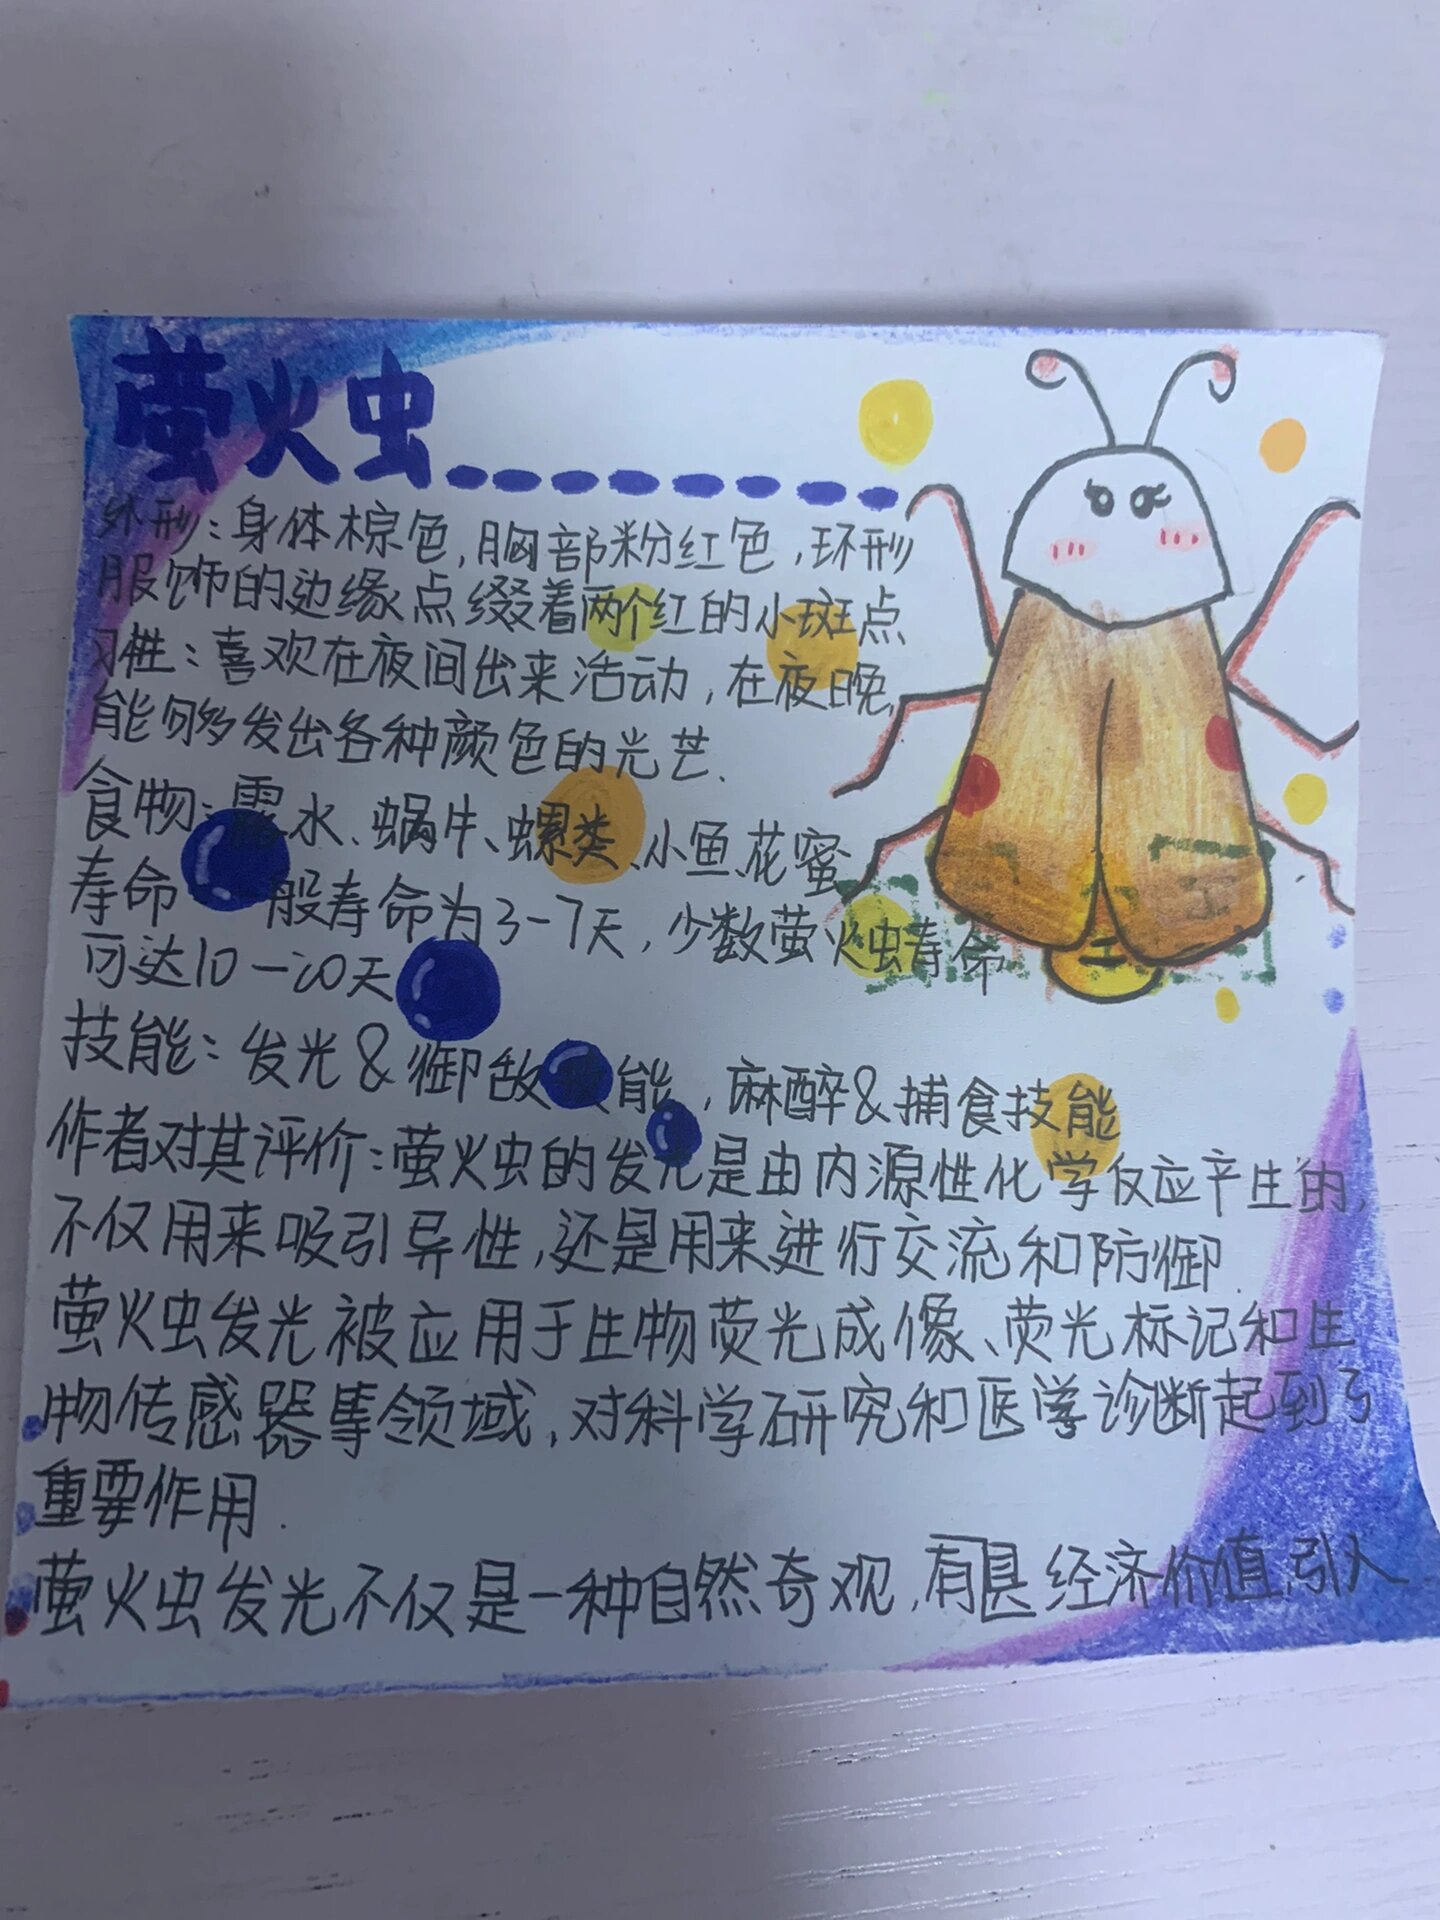 萤火虫
外形:身体棕色,胸部粉红色,环形
服饰的边缘点缀着两个红的小斑点
习性:喜欢在夜间出来活动,在夜晚,
能够多发出各种颜色的光芒.
食物:露水、蜗牛、螺类、小鱼、花蜜
寿命 一般寿命为3-7天,少数萤火虫寿命
可达10-20天
技能:发光&御敌技能,麻醉&捕食技能
作者对其评价:萤火虫的发光是由内源性化学反应产生的,
不仅用来吸引异性,还是用来进行交流和防御.
萤火虫发光被应用于生物荧光成像、荧光标记和生
物传感器等领域,对科学研究和医学诊断起到了
重要作用.
萤火虫发光不仅是一种自然奇观,有具经济价值,引人